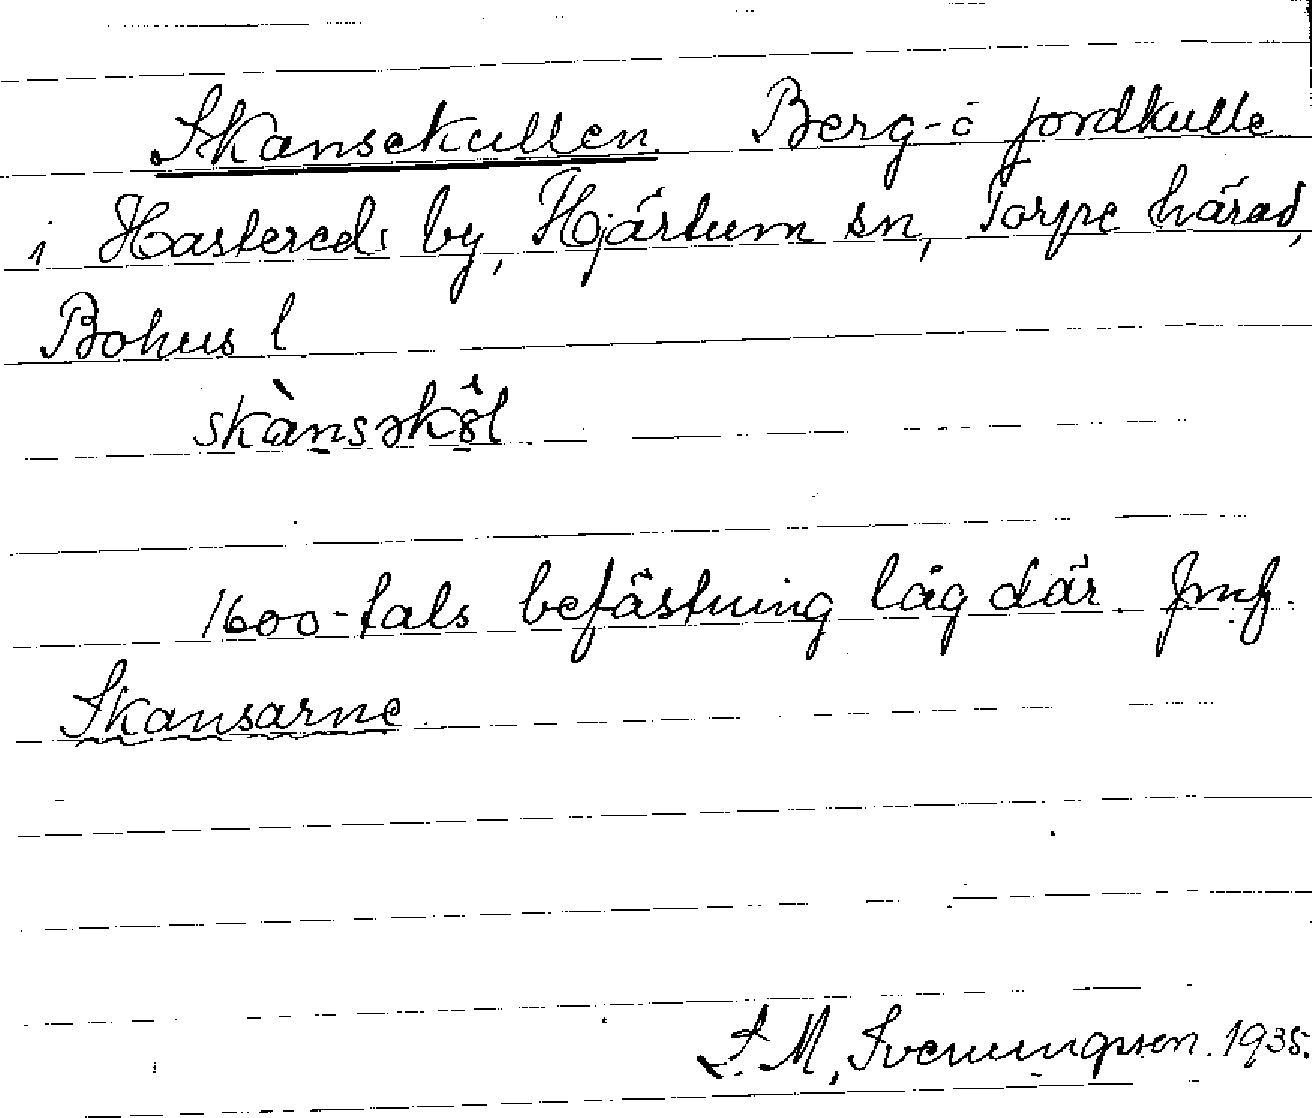 Skansekullen. Berg- o jordkulle
i Hastereds by, Hjärtum sn, Torpe härad,
Bohus l
skànsəkö̂l
1600-tals befästning låg där. Jmf.
Skansarne.
S. M. Svenungsson. 1935.